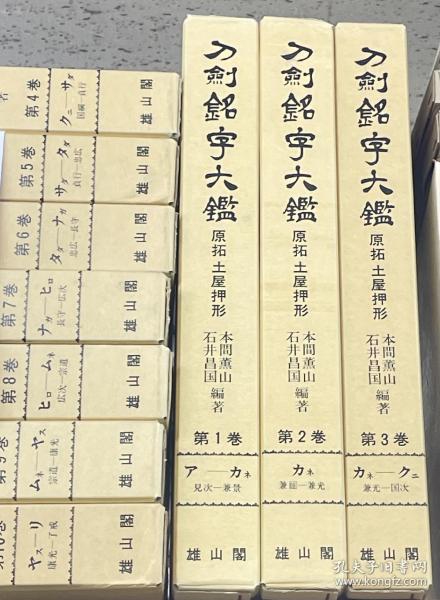 著
第4巻
クニ―サダ
国綱―貞行
雄山閣
第5巻
サダ―タダ
貞行―忠広
雄山閣
第6巻
タダ―ナガ
忠広―長守
雄山閣
第7巻
ナガ―ヒロ
長守―広次
雄山閣
第8巻
ヒロ―ムネ
広次―宗道
雄山閣
第9巻
ムネ―ヤス
宗道―康光
雄山閣
第10巻
ヤス―リ
康光―了戒
雄山閣
刀劍銘字大鑑
原拓 土屋押形
本間薫山
石井昌国
編著
第1巻
ア―カネ
見次―兼景
雄山閣
刀劍銘字大鑑
原拓 土屋押形
本間薫山
石井昌国
編著
第2巻
カネ
雄山閣
刀劍銘字大鑑
原拓 土屋押形
本間薫山
石井昌国
編著
第3巻
カネ―クニ
兼光―国次
雄山閣
孔夫子旧书网
www.kongfz.com